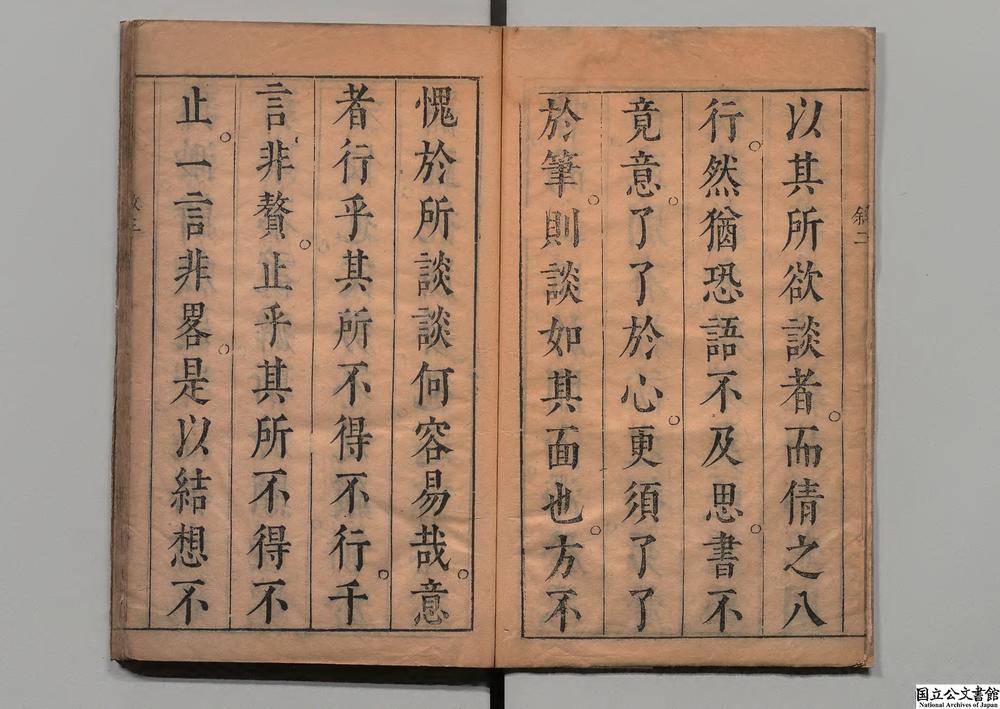 敘二
以其所欲談者。而倩之八
行。然猶恐語不及思。書不
竟意。了了於心。更須了了
於筆。則談如其面也。方不
愧於所談談何容易哉。意
者行乎其所不得不行。千
言非贅。止乎其所不得不
止。一言非畧。是以結想不
国立公文書館
National Archives of Japan